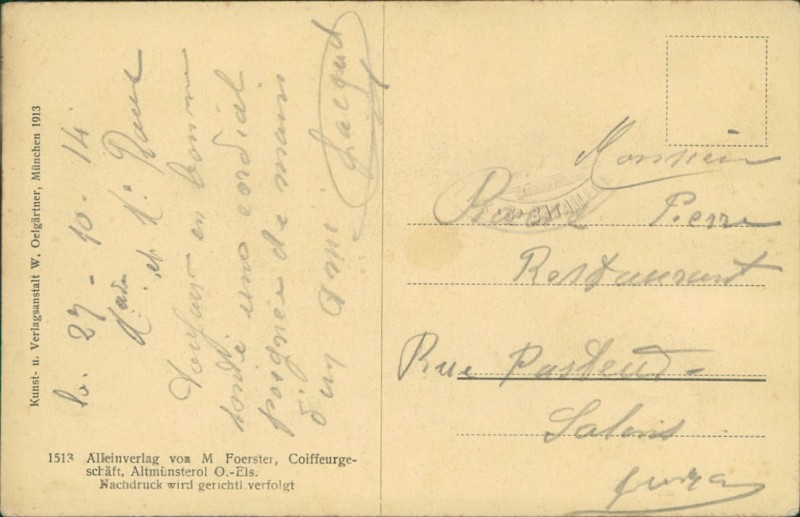 Kunst- u. Verlagsanstalt W. Oelgärtner, München 1913
27-10-14
et Mr
Toujours en bonne
une cordial
poignée de main
d'un ami
1513 Alleinverlag von M Foerster, Coiffeurge-
schäft, Altmünsterol O.-Els.
Nachdruck wird gerichtl. verfolgt
Monsieur
Pierre
Restaurant
Rue Pasteur
Salins
Jura